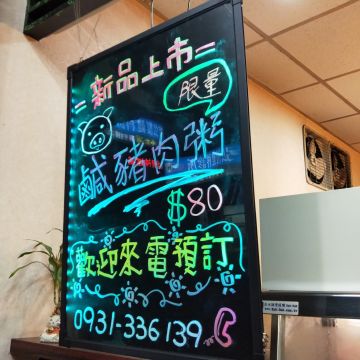 =新品上市=
限量
鹹豬肉粥
$80
歡迎來電預訂
0931-336139